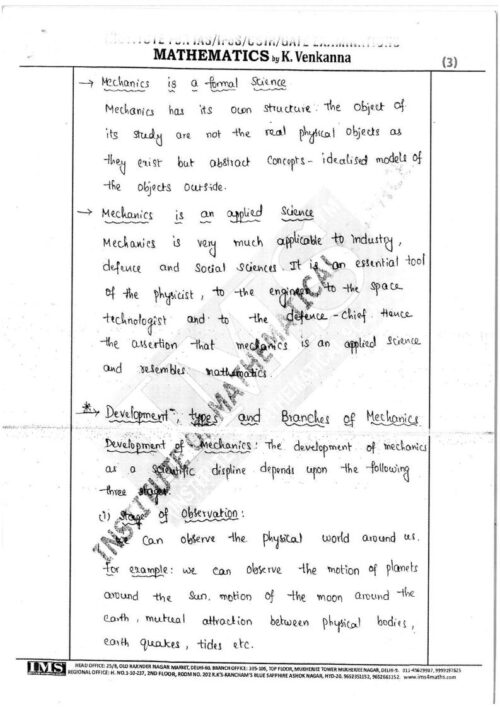 INSTITUTE FOR IAS/IFOS/CSIR/GATE EXAMINATIONS
MATHEMATICS by K. Venkanna
(3)
→ Mechanics is a formal Science
Mechanics has its own structure. The object of
its study are not the real physical objects as
they exist but abstract concepts - idealised models of
the objects outside.
→ Mechanics is an applied Science
Mechanics is very much applicable to industry,
defence and Social Sciences. It is an essential tool
of the physicist, to the engineer to the space
technologist and to the defence-chief. Hence
the assertion that mechanics is an applied science
and resembles mathematics.
* → Development, types and Branches of Mechanics
Development of Mechanics: The development of mechanics
as a Scientific displine depends upon the following
three stages.
(1) Stage of Observation:
We can observe the physical world around us.
for example: we can observe the motion of planets
around the Sun, motion of the moon around the
earth, mutual attraction between physical bodies,
earth quakes, tides etc.
INSTITUTE OF MATHEMATICAL
IMS
HEAD OFFICE: 25/8, OLD RAJENDER NAGAR MARKET, DELHI-60. BRANCH OFFICE: 105-106, TOP FLOOR, MUKHERJEE TOWER MUKHERJEE NAGAR, DELHI-9. 011-45629987, 9999197625
REGIONAL OFFICE: H. NO. 1-10-237, 2ND FLOOR, ROOM NO. 202 R.K'S-KANCHAM'S BLUE SAPPHIRE ASHOK NAGAR, HYD-20. 9652351152, 9652661152. www.ims4maths.com